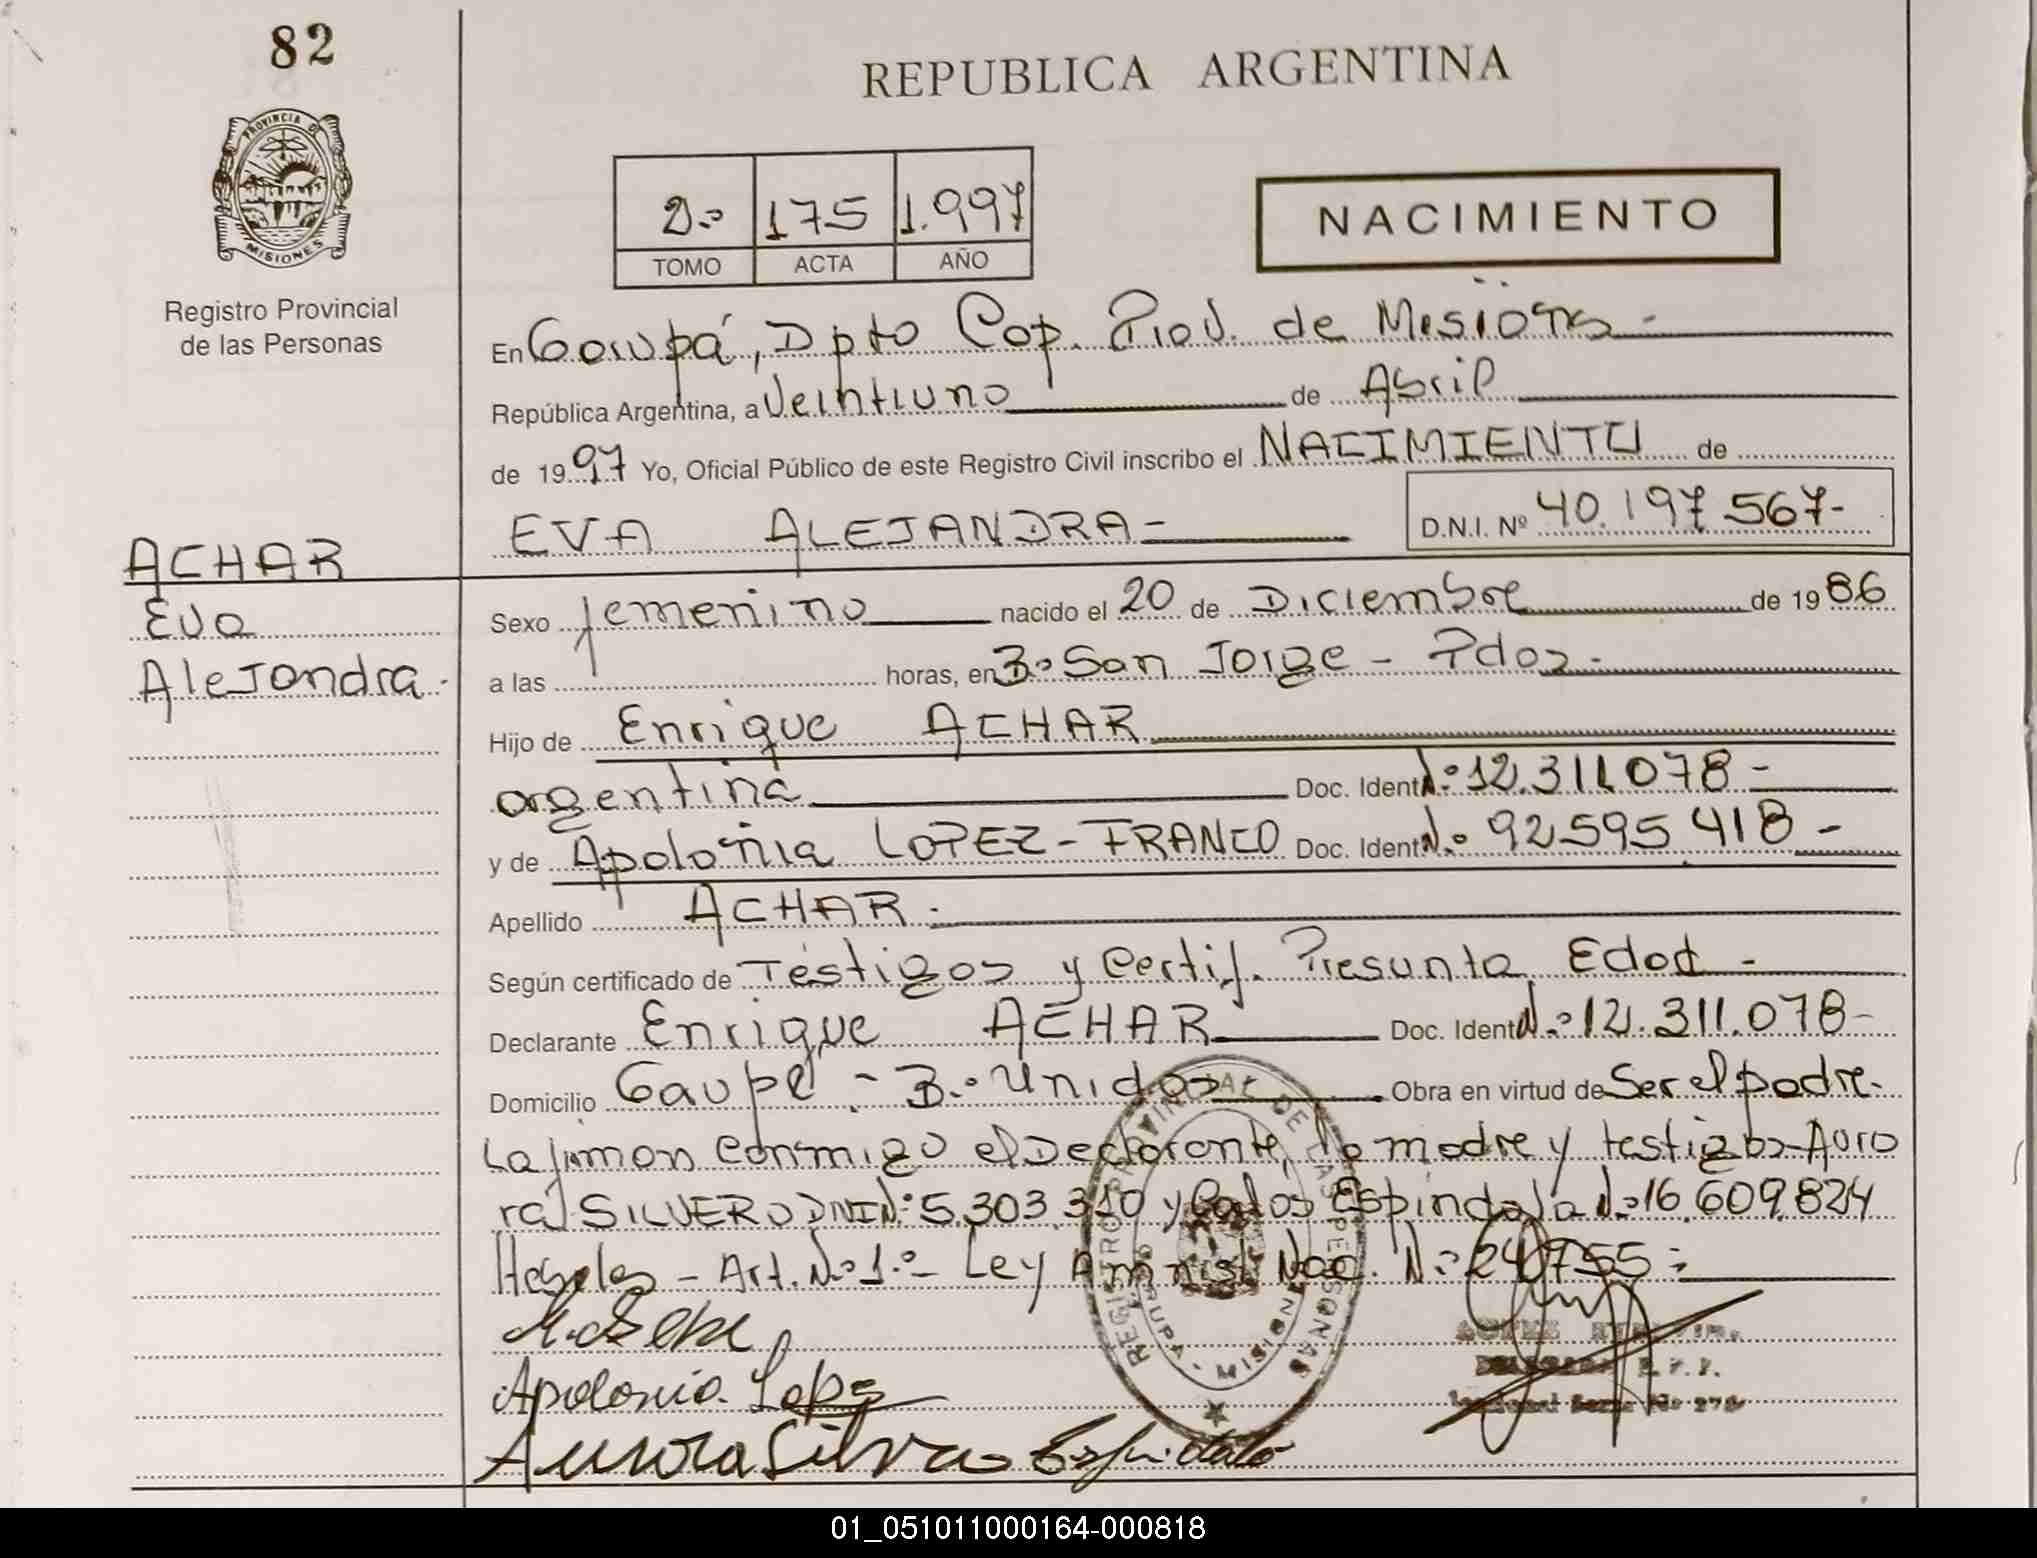 82
REPUBLICA ARGENTINA
PROVINCIA DE
MISIONES
Registro Provincial
de las Personas
2.º 175 1.997
TOMO ACTA AÑO
NACIMIENTO
En Garupá, Dpto Cap. Prov. de Misiones -
República Argentina, a Veintiuno de Abril
de 1997 Yo, Oficial Público de este Registro Civil inscribo el NACIMIENTO de
EVA ALEJANDRA - D.N.I. Nº 40.197 567-
ACHAR
Eva
Alejandra.
Sexo femenino nacido el 20 de Diciembre de 1986
a las horas, en B.º San Jorge - Pdas.
Hijo de Enrique ACHAR
argentina Doc. Ident N.º 12.311.078 -
y de Apolonia LOPEZ - FRANCO Doc. Ident N.º 92595.418 -
Apellido ACHAR.
Según certificado de Testigos y Certif. Presunta Edad -
Declarante Enrique ACHAR Doc. Ident N.º 12.311.078-
Domicilio Garupá - B.º Unidos Obra en virtud de Ser el padre.
La firman conmigo el Declarante, la madre y testigos - Auro
ra SILVERO DNI N.º 5.303.310 y Carlos Espindola N.º 16.609.824
- Art. N.º 1.º - Ley Amnist. Nac. N.º 240755 -
Apolonia Lopez
Aurora Silvero Espindola
REGISTRO PROVINCIAL DE LAS PERSONAS
GARUPA - MISIONES
01_051011000164-000818